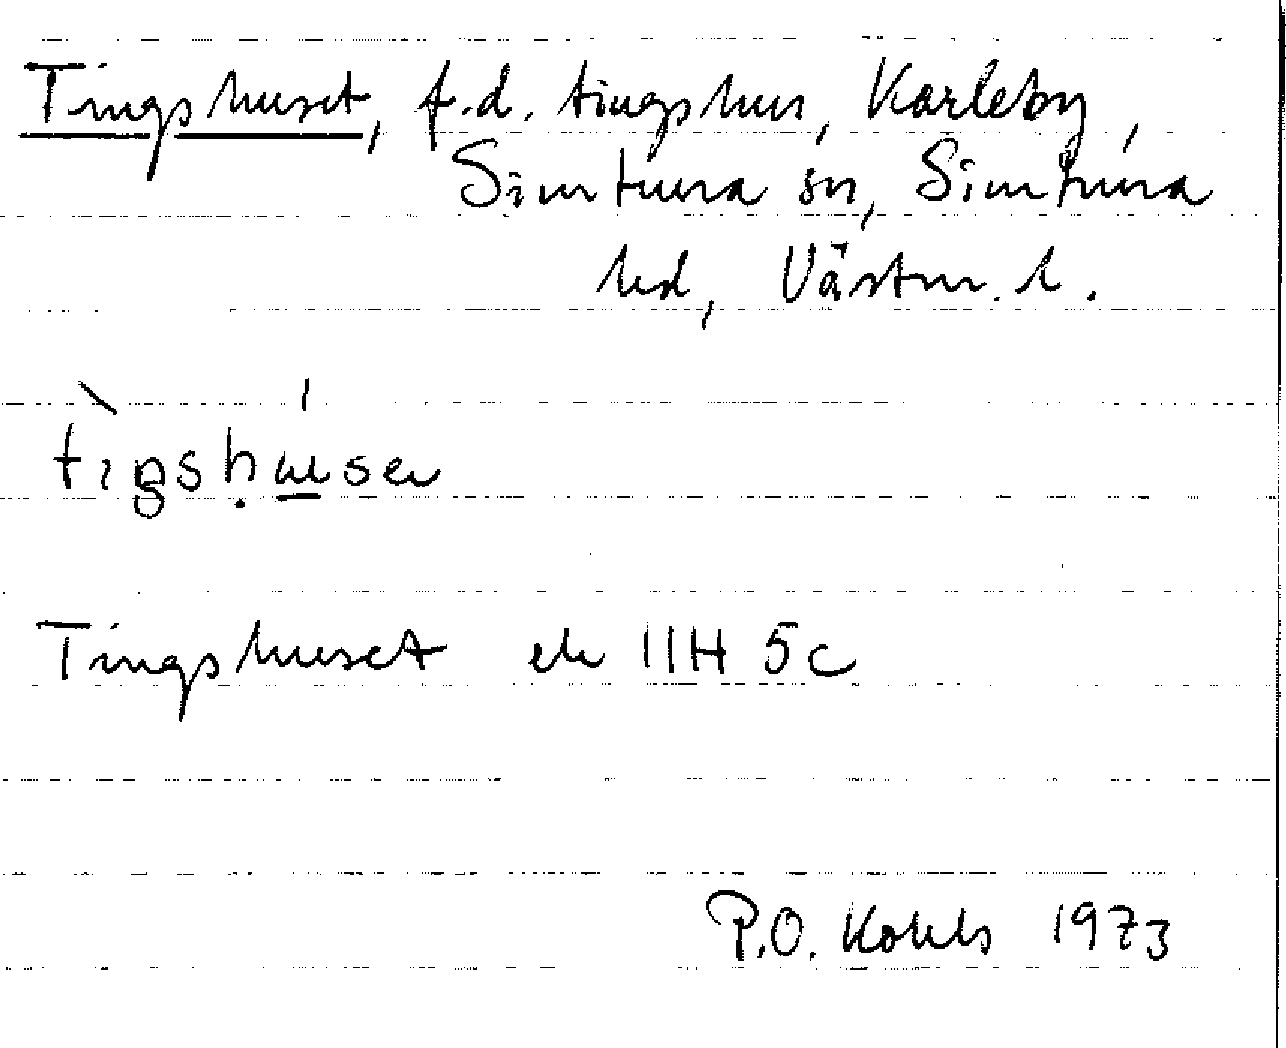 Tingshuset, f.d. tingshus, Karleby,
Simtuna sn, Simtuna
hd, Västm. l.
Tingshuset ek 11H 5c
P.O. Kohls 1973